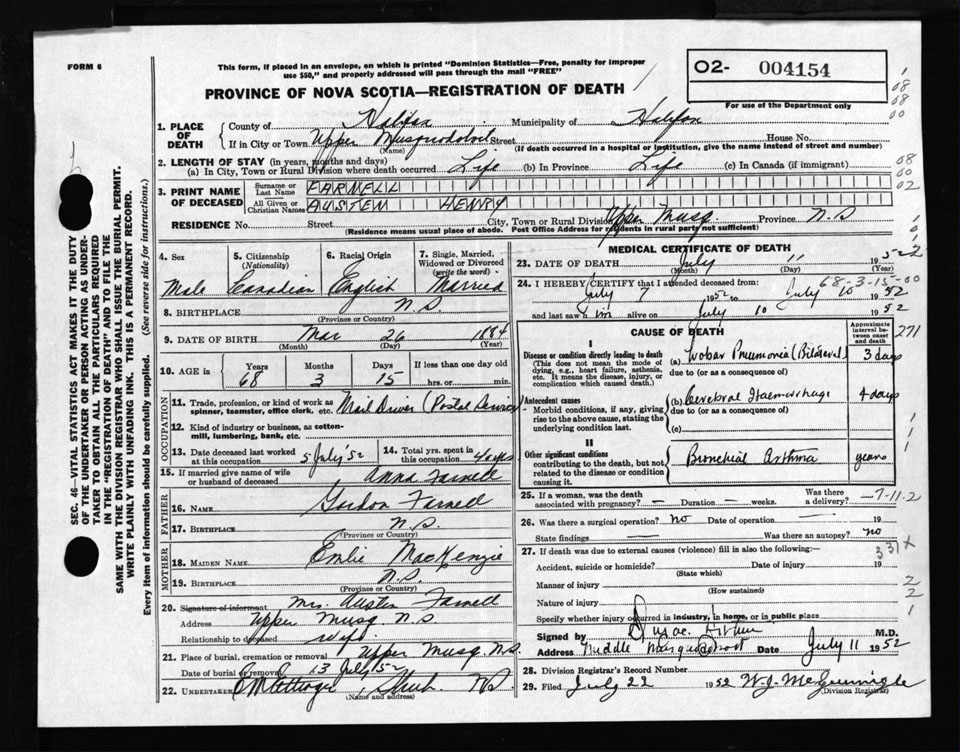 FORM 6
This form, if placed in an envelope, on which is printed "Dominion Statistics—Free, penalty for improper
use $50," and properly addressed will pass through the mail "FREE"
O2- 004154
For use of the Department only
PROVINCE OF NOVA SCOTIA—REGISTRATION OF DEATH
1. PLACE OF DEATH
County of Halifax Municipality of Halifax
If in City or Town Upper Musquodoboit Street House No.
(Name) (If death occurred in a hospital or institution, give the name instead of street and number)
2. LENGTH OF STAY (in years, months and days)
(a) In City, Town or Rural Division where death occurred Life (b) In Province Life (c) In Canada (if immigrant)
3. PRINT NAME OF DECEASED
Surname or Last Name FARNELL
All Given or Christian Names AUSTEN HENRY
RESIDENCE No. Street City, Town or Rural Division Upper Musq. Province N.S
(Residence means usual place of abode. Post Office Address for residents in rural party not sufficient)
4. Sex Male
5. Citizenship (Nationality) Canadian
6. Racial Origin English
7. Single, Married, Widowed or Divorced (write the word) Married
8. BIRTHPLACE N.S
(Province or Country)
9. DATE OF BIRTH Mar 26 1884
(Month) (Day) (Year)
10. AGE in Years 68 Months 3 Days 15 If less than one day old hrs. or min.
OCCUPATION
11. Trade, profession, or kind of work as spinner, teamster, office clerk, etc. Mail Driver (Postal Service)
12. Kind of industry or business, as cotton-mill, lumbering, bank, etc.
13. Date deceased last worked at this occupation 5 July '52
14. Total yrs. spent in this occupation 4 yrs
15. If married give name of wife or husband of deceased Anna Farnell
FATHER
16. NAME Gordon Farnell
17. BIRTHPLACE N.S.
(Province or Country)
MOTHER
18. MAIDEN NAME MacKenzie
19. BIRTHPLACE N.S.
(Province or Country)
20. Signature of informant Mrs. Austen Farnell
Address Upper Musq. N.S
Relationship to deceased wife.
21. Place of burial, cremation or removal Upper Musq. N.S.
Date of burial or removal 13 July 52
22. Undertaker NS
(Name and address)
MEDICAL CERTIFICATE OF DEATH
23. DATE OF DEATH July 11 1952
(Month) (Day) (Year)
68-3-15-00
24. I HEREBY CERTIFY that I attended deceased from:
July 7 1952 to July 10 1952
and last saw him alive on July 10 1952
CAUSE OF DEATH
Approximate interval between onset and death
271
I
Disease or condition directly leading to death
(This does not mean the mode of dying, e.g., heart failure, asthenia, etc. It means the disease, injury, or complication which caused death.)
(a) Lobar Pneumonia (Bilateral) 3 days
due to (or as a consequence of)
Antecedent causes
- Morbid conditions, if any, giving rise to the above cause, stating the underlying condition last.
(b) Cerebral Haemorrhage 4 days
due to (or as a consequence of)
(c)
II
Other significant conditions
contributing to the death, but not related to the disease or condition causing it.
Bronchial Asthma years
25. If a woman, was the death associated with pregnancy? — Duration — weeks. Was there a delivery?
-7-11-2
26. Was there a surgical operation? no Date of operation — 19
State findings — Was there an autopsy? no
27. If death was due to external causes (violence) fill in also the following:-
331 x
Accident, suicide or homicide? Date of injury 19
(State which)
Manner of injury
(How sustained)
Nature of injury
Specify whether injury occurred in industry, in home, or in public place
Signed by M.D.
Address Middle Musquodoboit Date July 11 1952
28. Division Registrar's Record Number
29. Filed July 22 1952
(Division Registrar)
SEC. 46—VITAL STATISTICS ACT MAKES IT THE DUTY
OF THE UNDERTAKER OR PERSON ACTING AS UNDER-
TAKER TO OBTAIN ALL THE PARTICULARS REQUIRED
IN THE "REGISTRATION OF DEATH" AND TO FILE THE
SAME WITH THE DIVISION REGISTRAR WHO SHALL ISSUE THE BURIAL PERMIT.
WRITE PLAINLY WITH UNFADING INK. THIS IS A PERMANENT RECORD.
Every item of information should be carefully supplied. (See reverse side for instructions.)